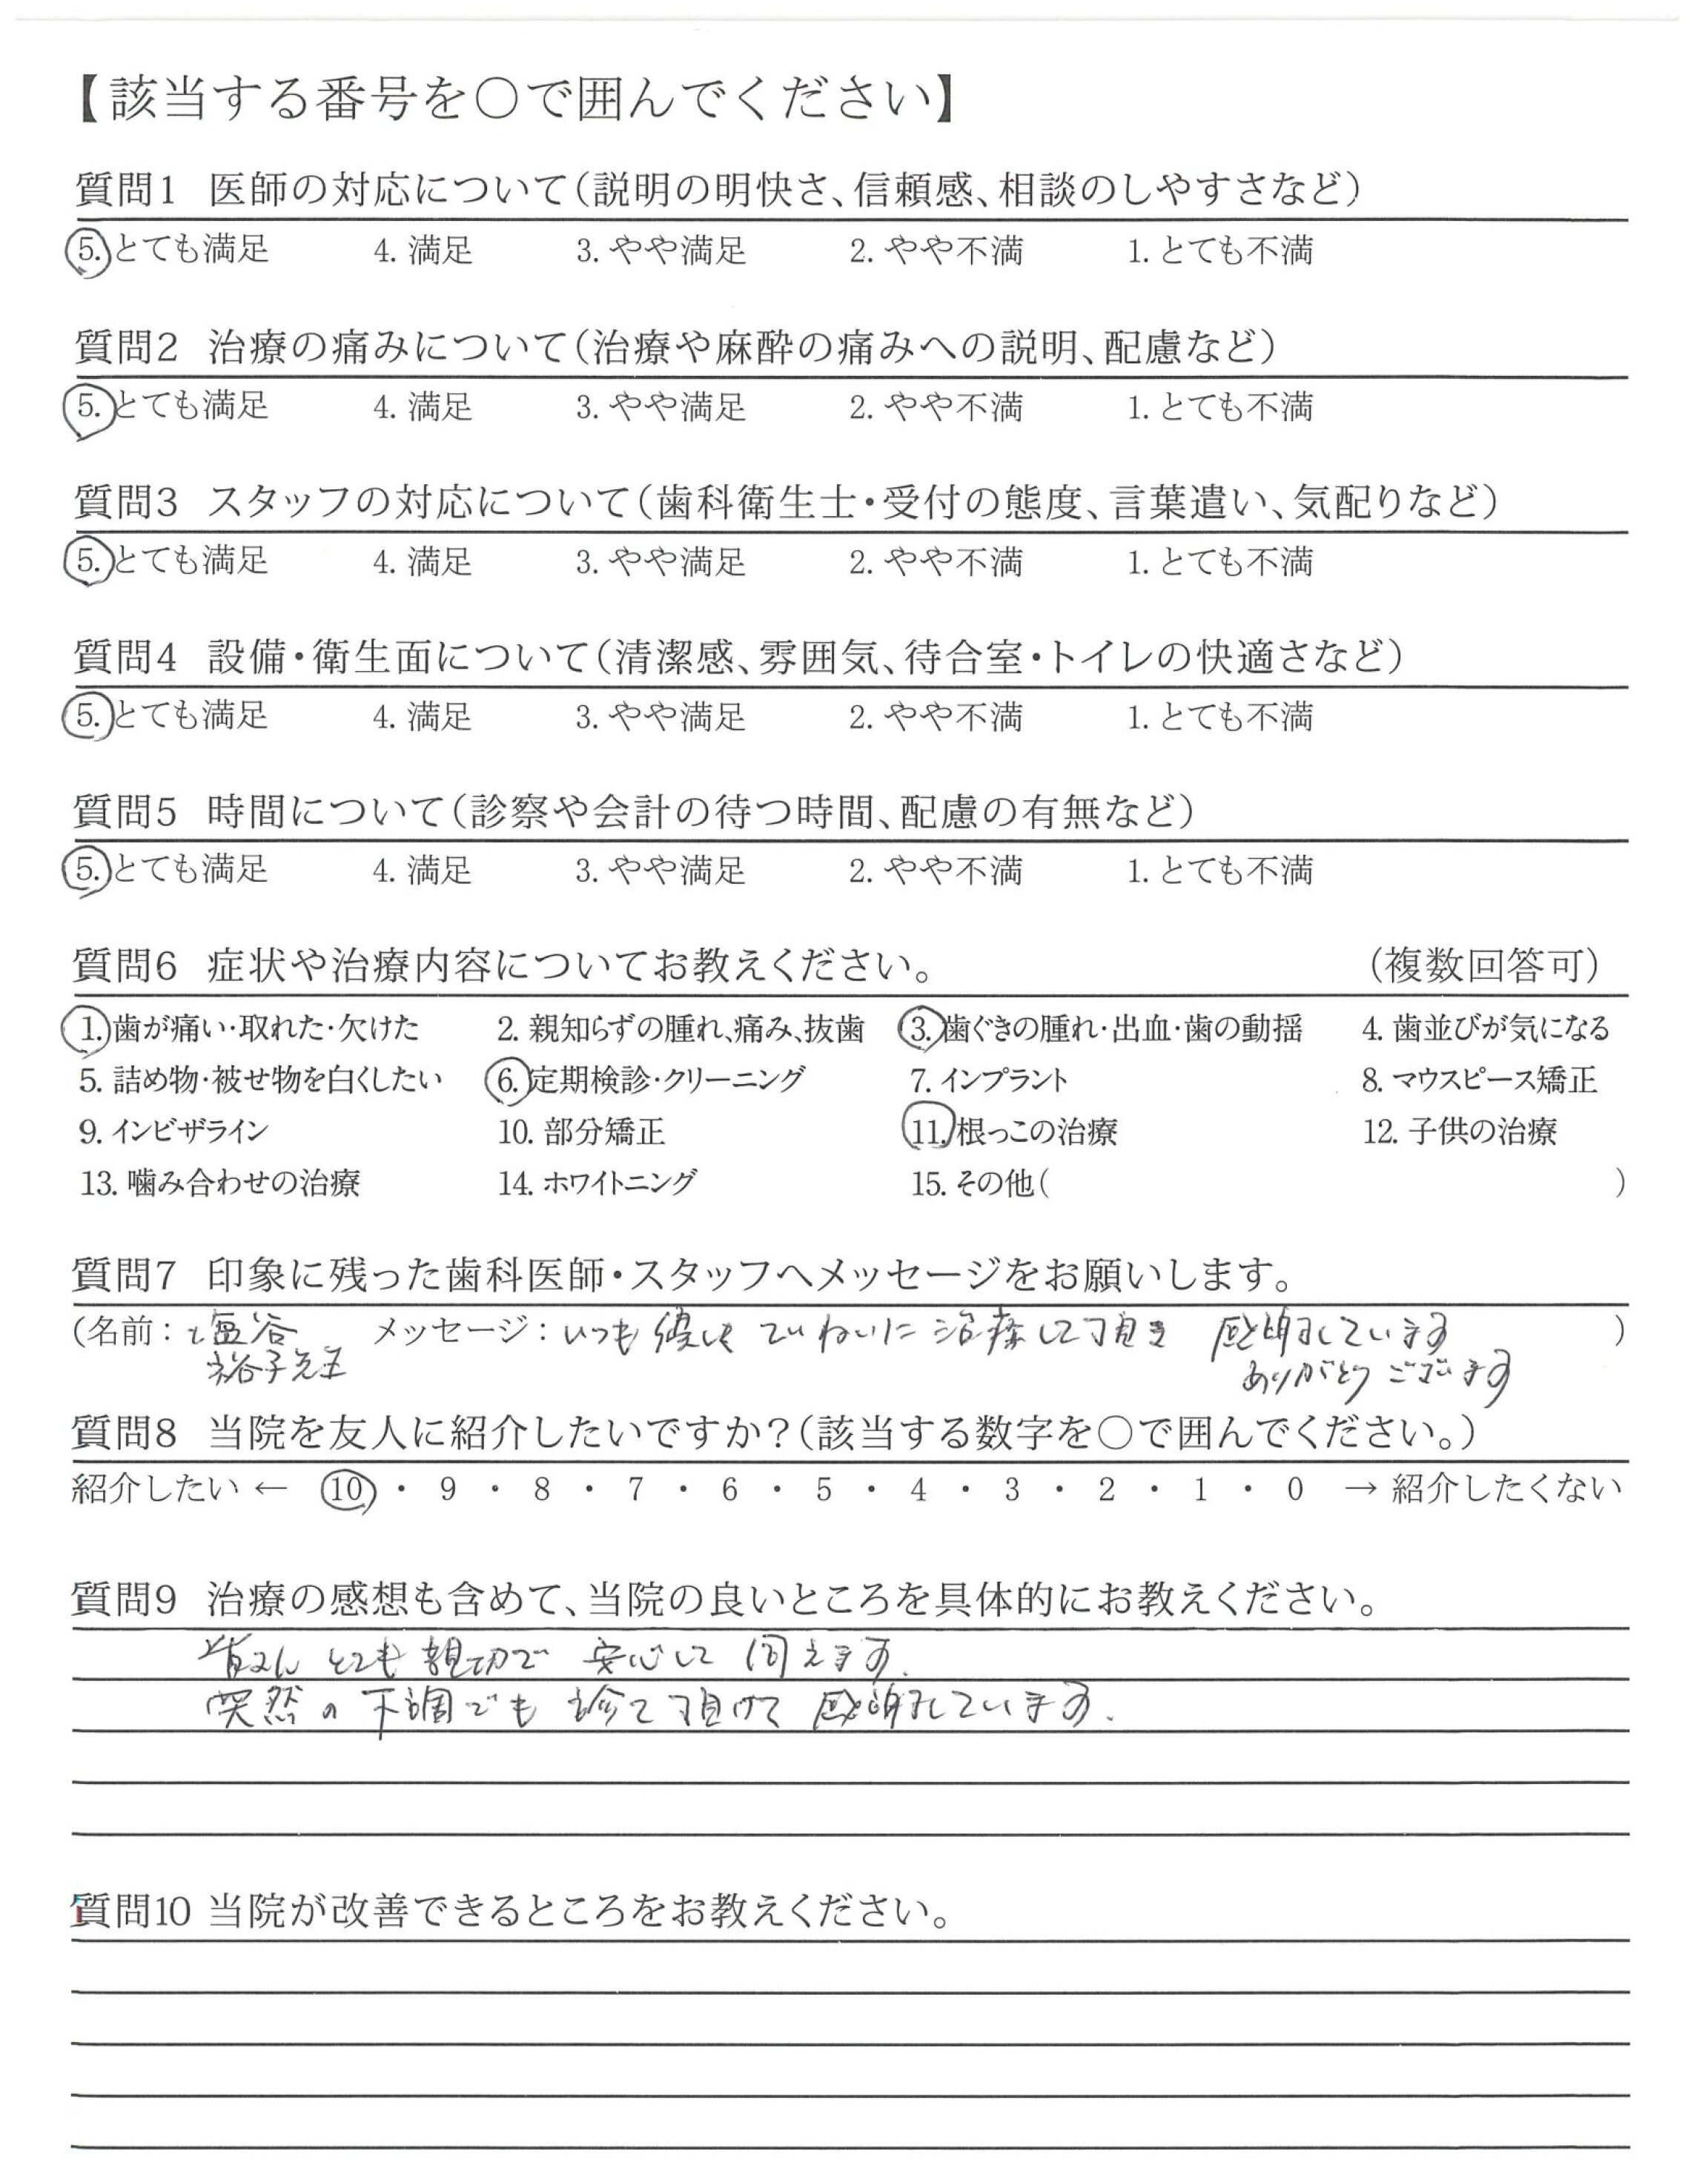 【該当する番号を○で囲んでください】
質問1 医師の対応について(説明の明快さ、信頼感、相談のしやすさなど)
5. とても満足 4. 満足 3. やや満足 2. やや不満 1. とても不満
質問2 治療の痛みについて(治療や麻酔の痛みへの説明、配慮など)
5. とても満足 4. 満足 3. やや満足 2. やや不満 1. とても不満
質問3 スタッフの対応について(歯科衛生士・受付の態度、言葉遣い、気配りなど)
5. とても満足 4. 満足 3. やや満足 2. やや不満 1. とても不満
質問4 設備・衛生面について(清潔感、雰囲気、待合室・トイレの快適さなど)
5. とても満足 4. 満足 3. やや満足 2. やや不満 1. とても不満
質問5 時間について(診察や会計の待つ時間、配慮の有無など)
5. とても満足 4. 満足 3. やや満足 2. やや不満 1. とても不満
質問6 症状や治療内容についてお教えください。 (複数回答可)
1. 歯が痛い・取れた・欠けた 2. 親知らずの腫れ、痛み、抜歯 3. 歯ぐきの腫れ・出血・歯の動揺 4. 歯並びが気になる
5. 詰め物・被せ物を白くしたい 6. 定期検診・クリーニング 7. インプラント 8. マウスピース矯正
9. インビザライン 10. 部分矯正 11. 根っこの治療 12. 子供の治療
13. 噛み合わせの治療 14. ホワイトニング 15. その他( )
質問7 印象に残った歯科医師・スタッフへメッセージをお願いします。
(名前: 塩谷 メッセージ: いつも優しく ていねいに 治療して頂き 感謝しています )
裕子先生 ありがとうございます
質問8 当院を友人に紹介したいですか?(該当する数字を○で囲んでください。)
紹介したい ← 10 ・ 9 ・ 8 ・ 7 ・ 6 ・ 5 ・ 4 ・ 3 ・ 2 ・ 1 ・ 0 → 紹介したくない
質問9 治療の感想も含めて、当院の良いところを具体的にお教えください。
皆さん とても親切で 安心して 伺えます.
突然の不調でも 診て頂けて 感謝しています.
質問10 当院が改善できるところをお教えください。